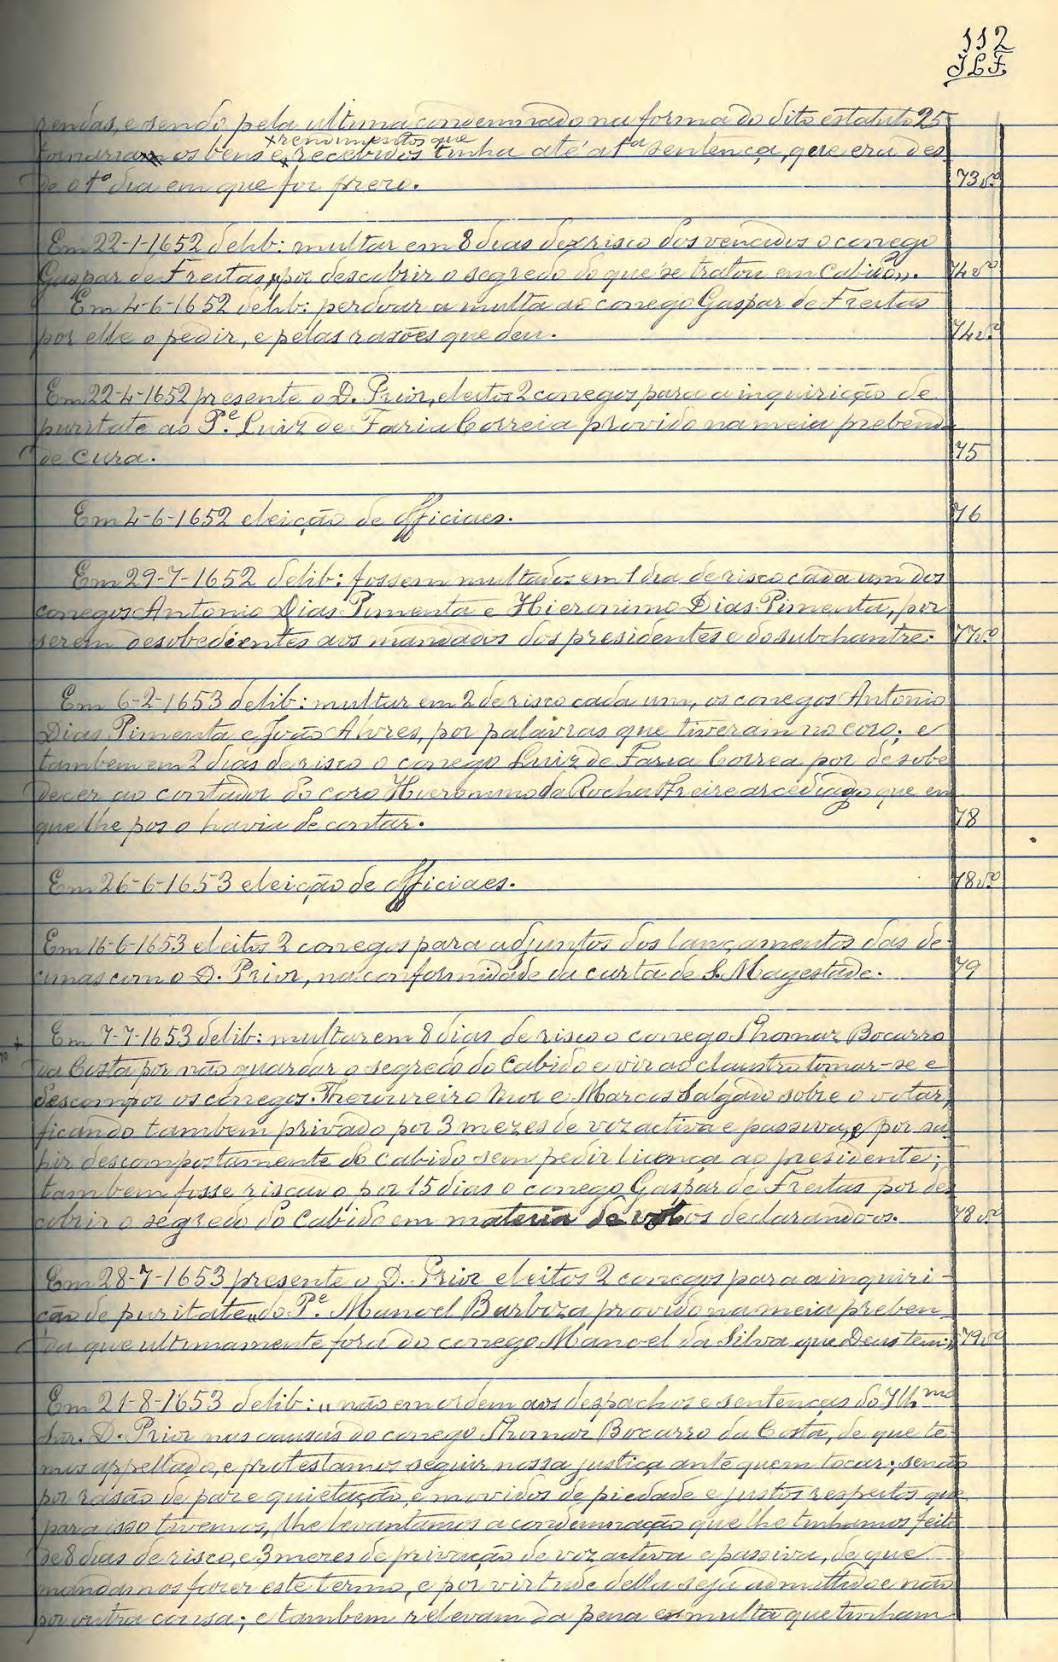 112
J.L.F.
rendas, e sendo pela ultima condemnado na forma do dito estatuto 25
+ rendimentos que
tornariam os bens e recebidos tinha até a 1ª sentença, que era des
de o 1º dia em que foi prezo. 73vº
Em 22-1-1652 delib: multar em 8 dias de risco dos vencidos o conego
Gaspar de Freitas, "por descubrir o segredo do que se tratou em Cabido". 74vº
Em 4-6-1652 delib: perdoar a multa ao conego Gaspar de Freitas
por elle o pedir, e pelas rasões que deu. 74vº
Em 22-4-1652 presente o D. Prior, eleitos 2 conegos para a inquirição de
puritate ao Pe. Luiz de Faria Correia provido na meia prebenda
de cura. 75
Em 4-6-1652 eleição de officiaes. 76
Em 29-7-1652 delib: fossem multados em 1 dia de risco cada um dos
conegos Antonio Dias Pimenta e Hieronimo Dias Pimenta, por
serem desobedientes aos mandados dos presidentes e do subchantre. 77vº
Em 6-2-1653 delib: multar em 2 de risco cada um, os conegos Antonio
Dias Pimenta e João Alvres, por palavras que tiveram no coro; e
tambem em 2 dias de risco o conego Luiz de Faria Correa por desobe
decer ao contador do coro Hieronimo da Rocha Freire arcediago que em
que lhe pos o havia de contar. 78
Em 26-6-1653 eleição de officiaes. 78vº
Em 16-6-1653 eleitos 2 conegos para adjuntos dos lançamentos das de-
cimas com o D. Prior, na conformidade da carta de S. Magestade. 79
+ Em 7-7-1653 delib: multar em 8 dias de risco o conego Thomaz Bocarro
da Costa por não guardar o segredo do Cabido e vir ao claustro tomar-se e
descompor os conegos Thezoureiro Mor e Marcos Salgado sobre o votar,
ficando tambem privado por 3 mezes de voz activa e passiva, e por sa-
hir descompostamente do Cabido sem pedir licença ao presidente;
tambem fosse riscado por 15 dias o conego Gaspar de Freitas por des
cobrir o segredo do Cabido em materia de votos declarando-os. 78vº
Em 28-7-1653 presente o D. Prior eleitos 2 conegos para a inquiri-
ção de puritate "do Pe. Manoel Barboza provido na meia preben
da que ultimamente fora do conego Manoel da Silva que Deus tem". 79vº
Em 21-8-1653 delib: "não em ordem aos despachos e sentenças do Illmo
Snr. D. Prior nas causas do conego Thomaz Bocarro da Costa, de que te-
mos appellado, e protestamos seguir nossa justiça ante quem tocar; senão
por rasão de paz e quietação, e movidos de piedade e justos respeitos que
para isso tivemos, lhe levantamos a condemnação que lhe tinhamos feito
de 8 dias de risco, e 3 mezes de privação de voz activa e passiva, de que
mandamos fazer este termo, e por virtude delle seja admittido e não
por outra cousa; e tambem relevam da pena e multa que tinham